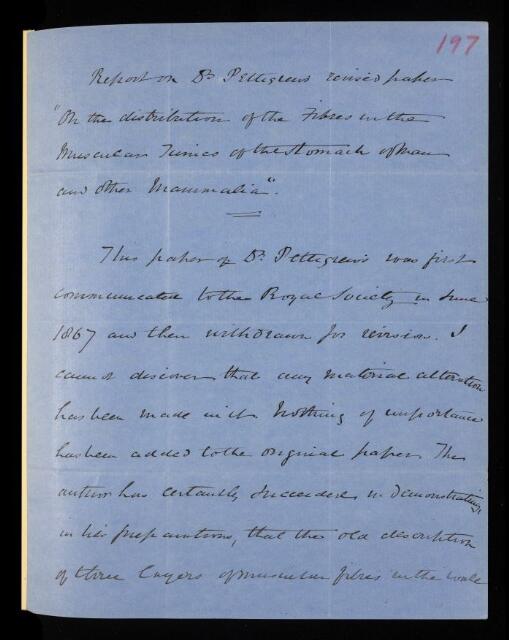 197
Report on Dr. Pettigrew's revised paper
"On the distribution of the Fibres in the
Muscular Tunics of the Stomach of Man
and other Mammalia".
This paper of Dr. Pettigrew's was first
communicated to the Royal Society in June
1867 and then withdrawn for revision. I
cannot discover that any material alteration
has been made in it. Nothing of importance
has been added to the original paper. The
author has certainly succeeded in demonstrating,
in his preparations, that the old description
of three layers of muscular fibres in the walls